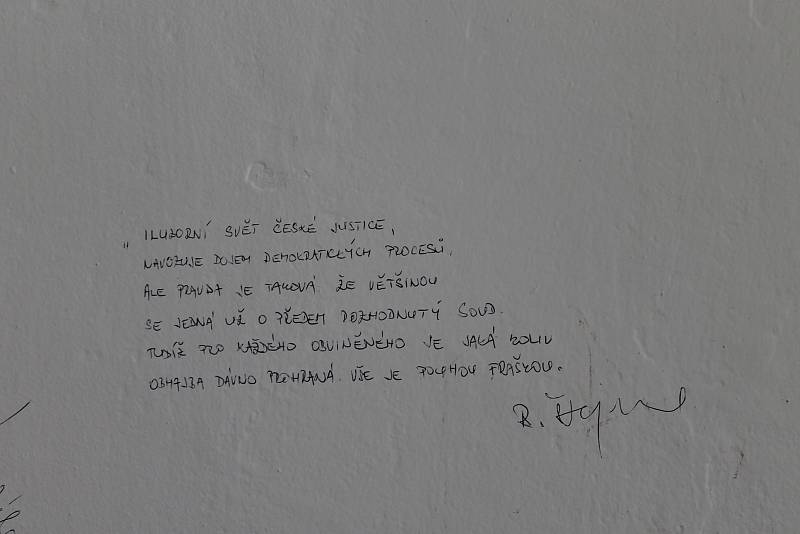 " ILUZORNÍ SVĚT ČESKÉ JUSTICE,
NAVOZUJE DOJEM DEMOKRATICKÝCH PROCESŮ,
ALE PRAVDA JE TAKOVÁ ŽE VĚTŠINOU
SE JEDNÁ UŽ O PŘEDEM ROZHODNUTÝ SOUD.
TUDÍŽ PRO KAŽDÉHO OBVINĚNÉHO JE JAKÁ KOLIV
OBHAJBA DÁVNO PROHRANÁ. VŠE JE POUHOU FRAŠKOU.
R.